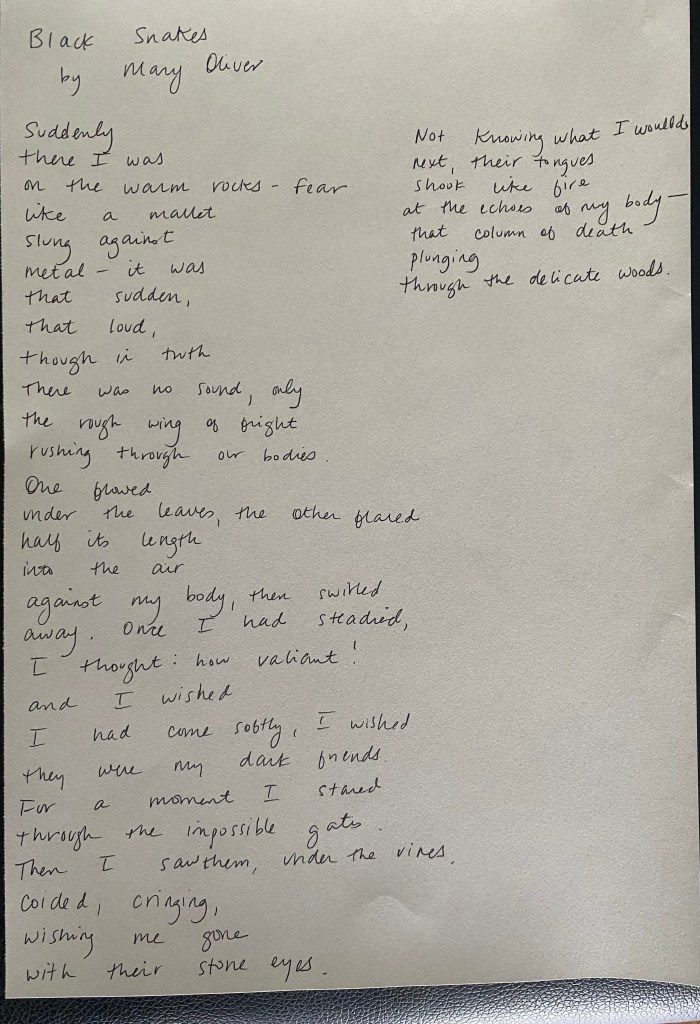 Black Snakes
by Mary Oliver
Suddenly
there I was
on the warm rocks - fear
like a mallet
slung against
metal - it was
that sudden,
that loud,
though in truth
There was no sound, only
the rough wing of fright
rushing through our bodies.
One flowed
under the leaves, the other flared
half its length
into the air
against my body, then swirled
away. Once I had steadied,
I thought: how valiant!
and I wished
I had come softly, I wished
they were my dark friends.
For a moment I stared
through the impossible gates.
Then I saw them, under the vines,
coided, cringing,
wishing me gone
with their stone eyes.
Not knowing what I would do
next, their tongues
shook like fire
at the echoes of my body—
that column of death
plunging
through the delicate woods.